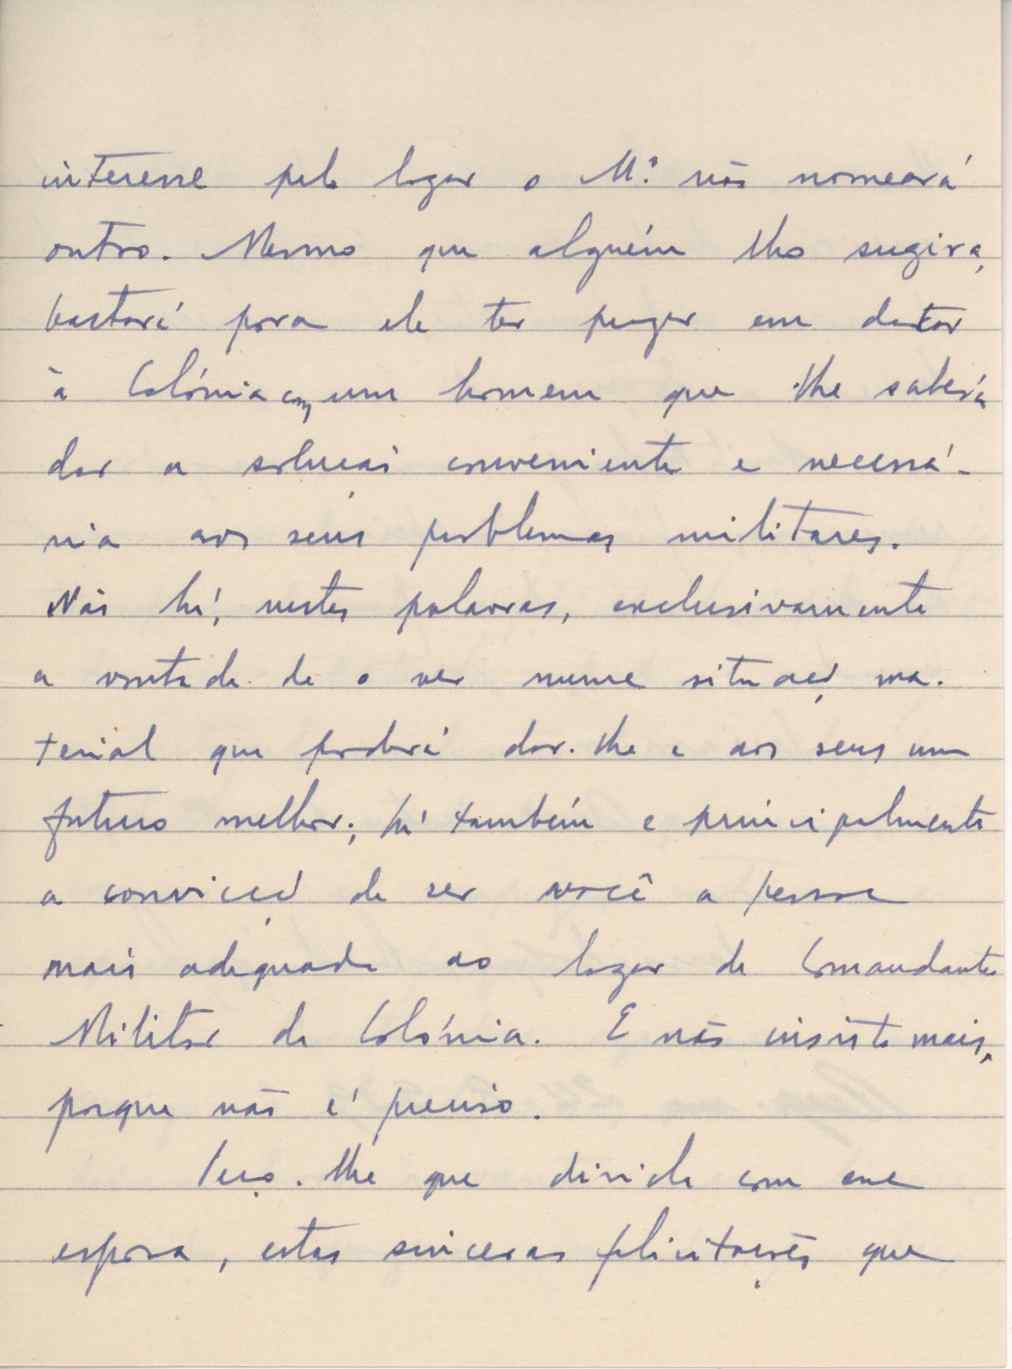 interesse pelo lugar o M.º não nomeará
outro. Mesmo que alguém lho sugira,
bastará para ele ter pezar em deixar
à Colónia com um homem que lhe saberá
dar a solução conveniente e necessá-
ria aos seus problemas militares.
Não há, nestas palavras, exclusivamente
a vontade de o ver numa situação ma-
terial que poderá dar-lhe e aos seus um
futuro melhor; há também e principalmente
a convicção de ser você a pessoa
mais adequada ao lugar de Comandante
Militar da Colónia. E não insisto mais,
porque não é preciso.
Peço-lhe que divida com sua
esposa, estas sinceras felicitações que